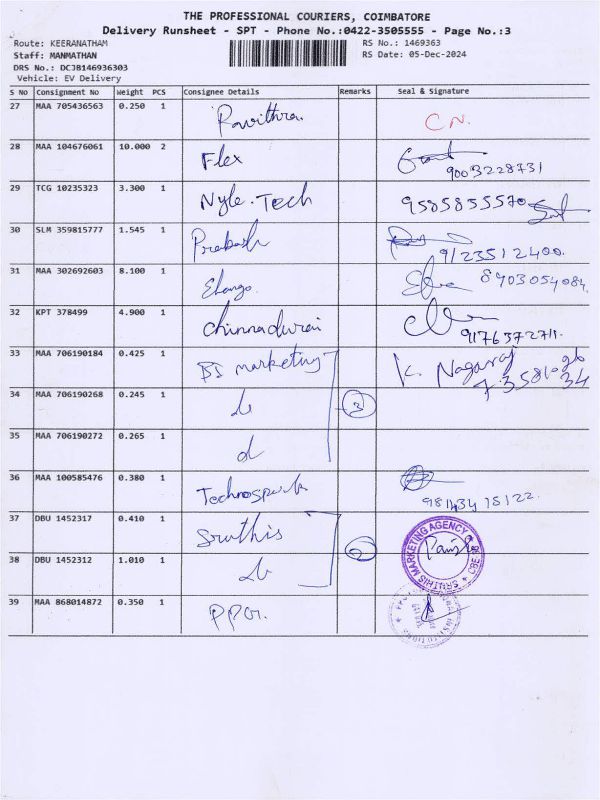 THE PROFESSIONAL COURIERS, COIMBATORE
Delivery Runsheet - SPT - Phone No.:0422-3505555 - Page No.:3
Route: KEERANATHAM
RS No.: 1469363
Staff: MANMATHAN
RS Date: 05-Dec-2024
DRS No.: DCJB146936303
Vehicle: EV Delivery
S No Consignment No Weight PCS Consignee Details Remarks Seal & Signature
27 MAA 705436563 0.250 1 Pavithra C.N.
28 MAA 104676061 10.000 2 Flex 9003228731
29 TCG 10235323 3.300 1 Nyle.Tech 9585855570
30 SLM 359815777 1.545 1 Prakash 9123512400.
31 MAA 302692603 8.100 1 Elango. 8903054084
32 KPT 378499 4.900 1 chinnadurai 9176372711.
33 MAA 706190184 0.425 1 BS marketing K. Nagaraj
34 MAA 706190268 0.245 1 3
35 MAA 706190272 0.265 1
36 MAA 100585476 0.380 1 Technospark
37 DBU 1452317 0.410 1 Sruthis SRUTHIS MARKETING AGENCY
38 DBU 1452312 1.010 1
39 MAA 868014872 0.350 1